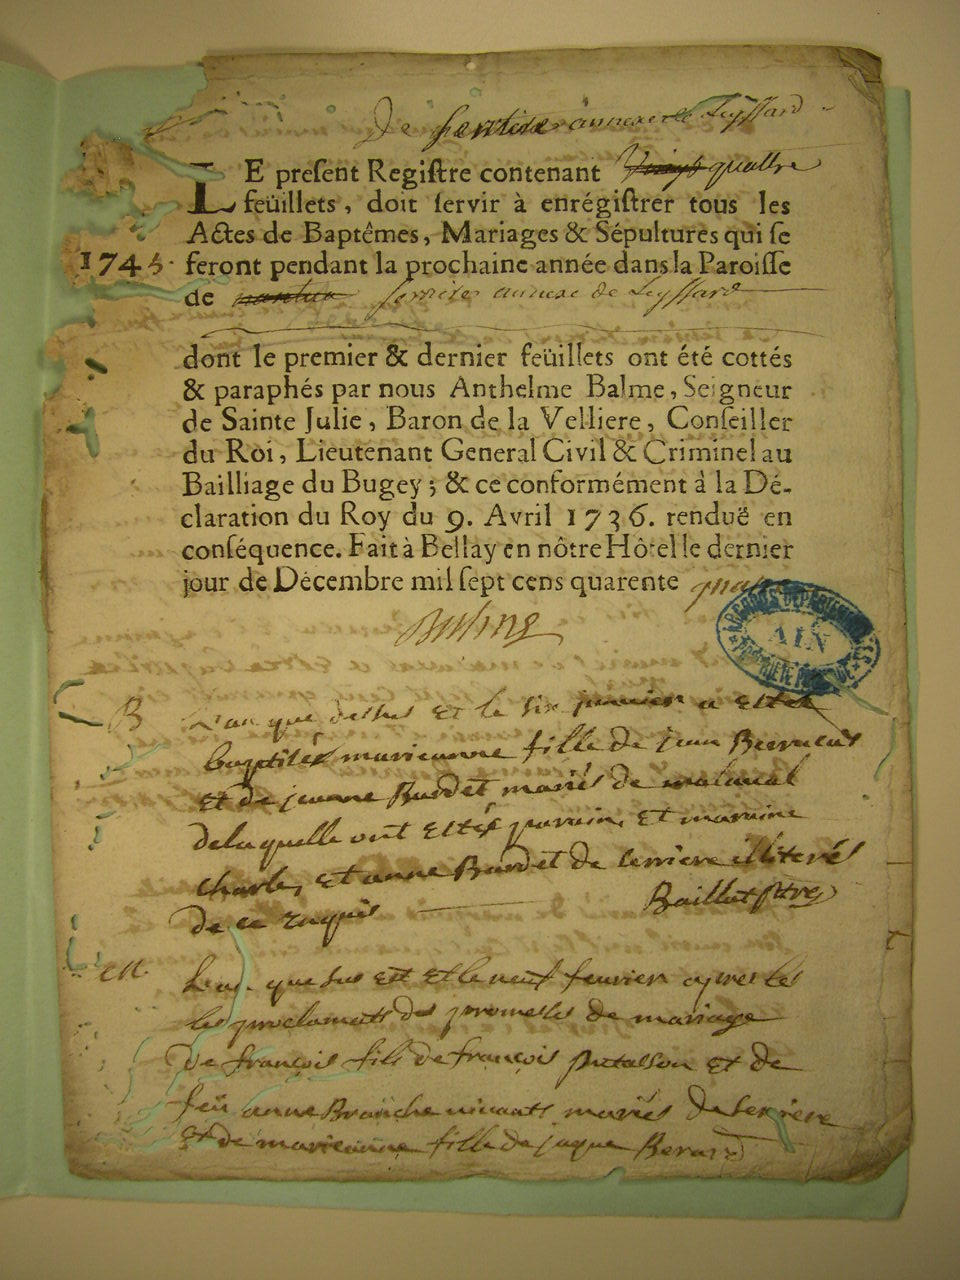 De serriere annexe de Leyssard
LE preſent Regiſtre contenant vingt quattre
feüillets, doit ſervir à enrégiſtrer tous les
Actes de Baptêmes, Mariages & Sépultures qui ſe
1745. feront pendant la prochaine année dans la Paroiſſe
de nantua serriere annexe de Leyssard
dont le premier & dernier feüillets ont été cottés
& paraphés par nous Anthelme Balme, Seigneur
de Sainte Julie, Baron de la Velliere, Conſeiller
du Roi, Lieutenant General Civil & Criminel au
Bailliage du Bugey; & ce conformément à la Dé-
claration du Roy du 9. Avril 1736. renduë en
conſéquence. Fait à Bellay en nôtre Hôtel le dernier
jour de Décembre mil ſept cens quarente quatre
Balme
ARCHIVES DÉPARTEMENTALES AIN PROPRIÉTÉ PUBLIQUE
B L'an que dessus et le six janvier a esté
baptisée marieanne fille de jean
et de jeanne Burdet mariés de
de laquelle ont estés parain et maraine
Charle, et anne Burdet de serriere illiterés
de ce enquis Baillat ptre
M. L'an que sus est et le neuf fevrier apres les
les proclamats des promesses de mariage
De françois fils de françois et de
feu anne Branche vivants mariés de serriere
et de marieanne fille de jaque Berard